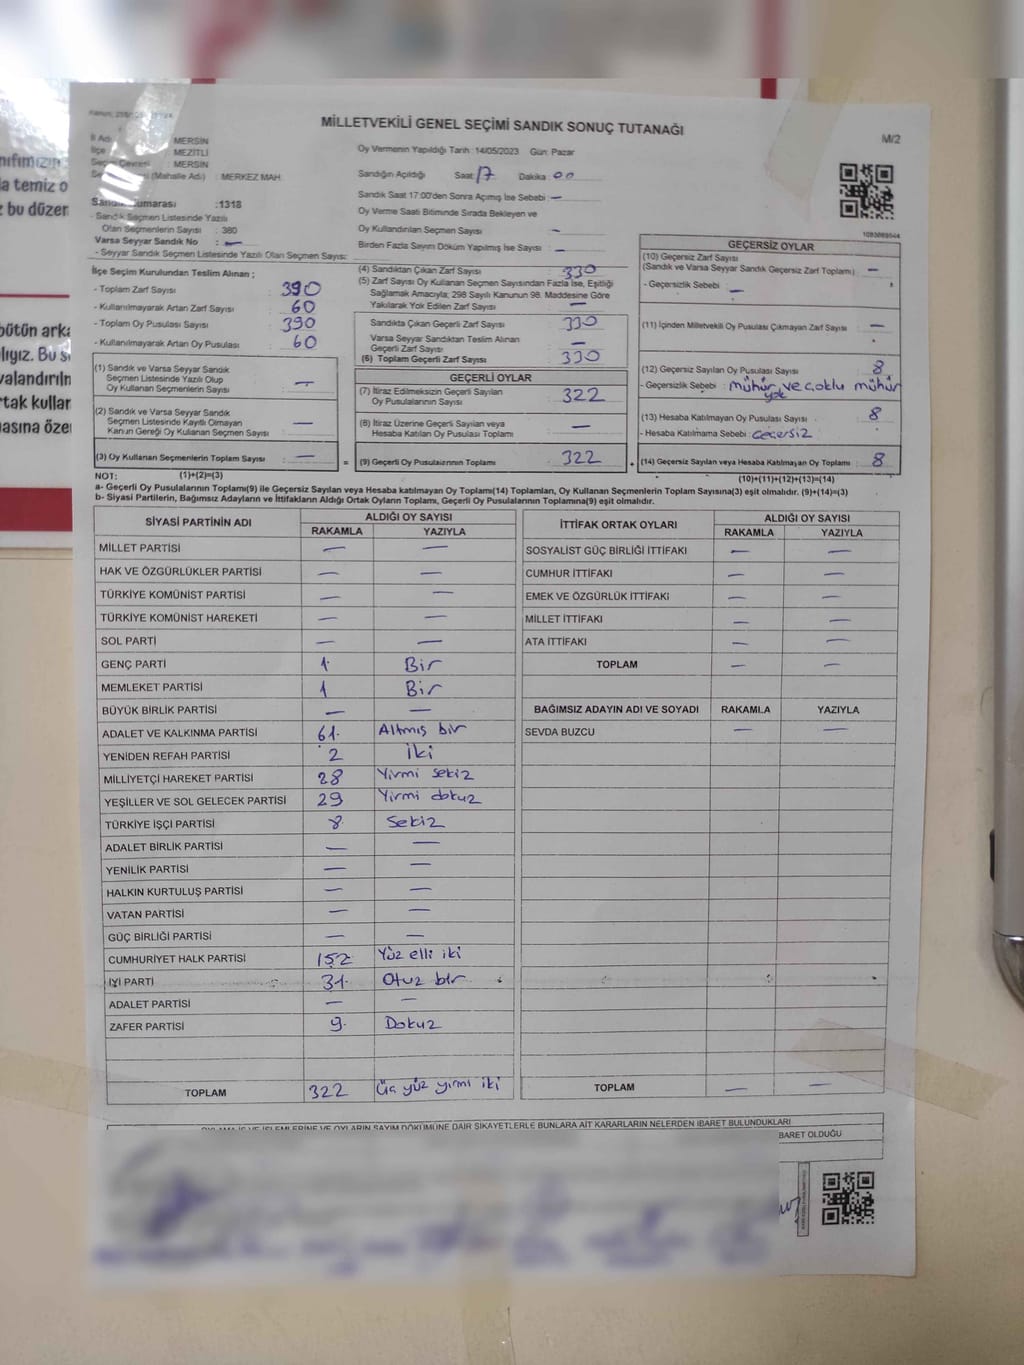 nıfımızın
la temiz o
z bu düzer
bütün arka
valandırıln
rtak kullar
nasına öze
MİLLETVEKİLİ GENEL SEÇİMİ SANDIK SONUÇ TUTANAĞI
M/2
İl Adı : MERSİN
İlçe : MEZİTLİ
Seçim Çevresi : MERSİN
(Mahalle Adı) : MERKEZ MAH.
Sandık Numarası :1318
- Sandık Seçmen Listesinde Yazılı
Olan Seçmenlerin Sayısı : 380
Varsa Seyyar Sandık No : —
- Seyyar Sandık Seçmen Listesinde Yazılı Olan Seçmen Sayısı:
Oy Vermenin Yapıldığı Tarih :14/05/2023 Gün: Pazar
Sandığın Açıldığı Saat : 17 Dakika : 00
Sandık Saat 17:00'den Sonra Açılmış İse Sebebi —
Oy Verme Saati Bitiminde Sırada Bekleyen ve
Oy Kullandırılan Seçmen Sayısı —
Birden Fazla Sayım Döküm Yapılmış İse Sayısı : —
1093089544
İlçe Seçim Kurulundan Teslim Alınan ;
- Toplam Zarf Sayısı : 390
- Kullanılmayarak Artan Zarf Sayısı : 60
- Toplam Oy Pusulası Sayısı : 390
- Kullanılmayarak Artan Oy Pusulası : 60
(1) Sandık ve Varsa Seyyar Sandık
Seçmen Listesinde Yazılı Olup
Oy Kullanan Seçmenlerin Sayısı : —
(2) Sandık ve Varsa Seyyar Sandık
Seçmen Listesinde Kayıtlı Olmayan
Kanun Gereği Oy Kullanan Seçmen Sayısı : —
(3) Oy Kullanan Seçmenlerin Toplam Sayısı : —
(4) Sandıktan Çıkan Zarf Sayısı : 330
(5) Zarf Sayısı Oy Kullanan Seçmen Sayısından Fazla İse, Eşitliği
Sağlamak Amacıyla; 298 Sayılı Kanunun 98. Maddesine Göre
Yakılarak Yok Edilen Zarf Sayısı : —
Sandıkta Çıkan Geçerli Zarf Sayısı : 330
Varsa Seyyar Sandıktan Teslim Alınan
Geçerli Zarf Sayısı : —
(6) Toplam Geçerli Zarf Sayısı : 330
GEÇERLİ OYLAR
(7) İtiraz Edilmeksizin Geçerli Sayılan
Oy Pusulalarının Sayısı : 322
(8) İtiraz Üzerine Geçerli Sayılan veya
Hesaba Katılan Oy Pusulası Toplamı : —
= (9) Geçerli Oy Pusulalarının Toplamı : 322
GEÇERSİZ OYLAR
(10) Geçersiz Zarf Sayısı
(Sandık ve Varsa Seyyar Sandık Geçersiz Zarf Toplamı) : —
- Geçersizlik Sebebi : —
(11) İçinden Milletvekili Oy Pusulası Çıkmayan Zarf Sayısı : —
(12) Geçersiz Sayılan Oy Pusulası Sayısı : 8
- Geçersizlik Sebebi : mühür yok ve çoklu mühür
(13) Hesaba Katılmayan Oy Pusulası Sayısı : 8
- Hesaba Katılmama Sebebi : Geçersiz
+ (14) Geçersiz Sayılan veya Hesaba Katılmayan Oy Toplamı : 8
NOT: (1)+(2)=(3)
(10)+(11)+(12)+(13)=(14)
a- Geçerli Oy Pusulalarının Toplamı(9) ile Geçersiz Sayılan veya Hesaba katılmayan Oy Toplamı(14) Toplamları, Oy Kullanan Seçmenlerin Toplam Sayısına(3) eşit olmalıdır. (9)+(14)=(3)
b- Siyasi Partilerin, Bağımsız Adayların ve İttifakların Aldığı Oyların Toplamı, Geçerli Oy Pusulalarının Toplamına(9) eşit olmalıdır.
SİYASİ PARTİNİN ADI ALDIĞI OY SAYISI
RAKAMLA YAZIYLA
MİLLET PARTİSİ — —
HAK VE ÖZGÜRLÜKLER PARTİSİ — —
TÜRKİYE KOMÜNİST PARTİSİ — —
TÜRKİYE KOMÜNİST HAREKETİ — —
SOL PARTİ — —
GENÇ PARTİ 1 Bir
MEMLEKET PARTİSİ 1 Bir
BÜYÜK BİRLİK PARTİSİ — —
ADALET VE KALKINMA PARTİSİ 61 Altmış bir
YENİDEN REFAH PARTİSİ 2 İki
MİLLİYETÇİ HAREKET PARTİSİ 28 Yirmi sekiz
YEŞİLLER VE SOL GELECEK PARTİSİ 29 Yirmi dokuz
TÜRKİYE İŞÇİ PARTİSİ 8 Sekiz
ADALET BİRLİK PARTİSİ — —
YENİLİK PARTİSİ — —
HALKIN KURTULUŞ PARTİSİ — —
VATAN PARTİSİ — —
GÜÇ BİRLİĞİ PARTİSİ — —
CUMHURİYET HALK PARTİSİ 152 Yüz elli iki
İYİ PARTİ 31 Otuz bir
ADALET PARTİSİ — —
ZAFER PARTİSİ 9 Dokuz
TOPLAM 322 Üç yüz yirmi iki
İTTİFAK ORTAK OYLARI ALDIĞI OY SAYISI
RAKAMLA YAZIYLA
SOSYALİST GÜÇ BİRLİĞİ İTTİFAKI — —
CUMHUR İTTİFAKI — —
EMEK VE ÖZGÜRLÜK İTTİFAKI — —
MİLLET İTTİFAKI — —
ATA İTTİFAKI — —
TOPLAM — —
BAĞIMSIZ ADAYIN ADI VE SOYADI RAKAMLA YAZIYLA
SEVDA BUZCU — —
TOPLAM — —
OYLAMA İŞ VE İŞLEMLERİNE VE OYLARIN SAYIM DÖKÜMÜNE DAİR ŞİKAYETLERLE BUNLARA AİT KARARLARIN NELERDEN İBARET BULUNDUKLARI
BARET OLDUĞU